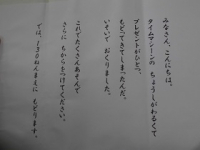 みなさん、こんにちは。
タイムマシーンの ちょうしがわるくて
プレゼントがひとつ、
もどってきてしまったんだ。
いそいで おくりました。
これでたくさんあそんで
さらに ちからをつけてください。
では、130ねんまえに もどります。